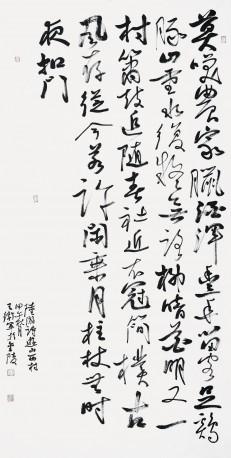 莫笑农家腊酒浑丰年留客足鸡
豚山重水复疑无路柳暗花明又一
村箫鼓追随春社近衣冠简朴古
风存从今若许闲乘月拄杖无时
夜扣门
陆游诗游山西村
甲午秋月